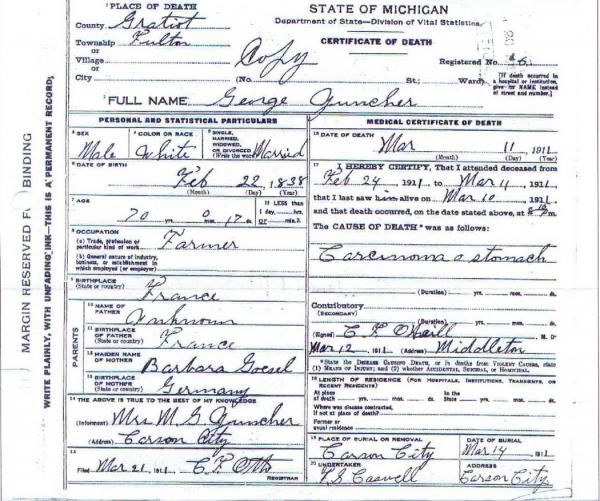 MARGIN RESERVED FO BINDING
WRITE PLAINLY, WITH UNFADING INK—THIS IS A PERMANENT RECORD,
1 PLACE OF DEATH
County Gratiot
Township Fulton
or
Village
or
City
Copy
STATE OF MICHIGAN
Department of State—Division of Vital Statistics.
CERTIFICATE OF DEATH
Registered No.
(No. St.; Ward)
[If death occurred in a hospital or institution, give its NAME instead of street and number.]
2 FULL NAME George Guncher
PERSONAL AND STATISTICAL PARTICULARS
3 SEX
Male
4 COLOR OR RACE
White
5 SINGLE, MARRIED, WIDOWED, OR DIVORCED
(Write the word) Married
6 DATE OF BIRTH
Feb 22, 1838
(Month) (Day) (Year)
7 AGE
70 yrs. 0 mos. 17 ds.
If LESS than
1 day, hrs.
or min.?
8 OCCUPATION
(a) Trade, profession or particular kind of work Farmer
(b) General nature of industry, business, or establishment in which employed (or employer)
9 BIRTHPLACE
(State or country) France
PARENTS
10 NAME OF FATHER Unknown
11 BIRTHPLACE OF FATHER
(State or country) France
12 MAIDEN NAME OF MOTHER Barbara Goesel
13 BIRTHPLACE OF MOTHER
(State or country) Germany
14 THE ABOVE IS TRUE TO THE BEST OF MY KNOWLEDGE
(Informant) Mrs M. G Guncher
(Address) Carson City
15
Filed Mar 21, 1911 C. F. Otto
REGISTRAR
MEDICAL CERTIFICATE OF DEATH
16 DATE OF DEATH
Mar 11, 1911
(Month) (Day) (Year)
17 I HEREBY CERTIFY, That I attended deceased from
Feb 24, 1911, to Mar 11, 1911
that I last saw him alive on Mar 10, 1911
and that death occurred, on the date stated above, at m.
The CAUSE OF DEATH* was as follows:
Carcinoma o stomach
(Duration) yrs. mos. ds.
Contributory
(SECONDARY)
(Duration) yrs. mos. ds.
(Signed) C F O'Neill M. D.
Mar 12, 1911 (Address) Middleton
*State the DISEASE CAUSING DEATH, or in deaths from VIOLENT CAUSES, state (1) MEANS OF INJURY; and (2) whether ACCIDENTAL, SUICIDAL, or HOMICIDAL.
18 LENGTH OF RESIDENCE (FOR HOSPITALS, INSTITUTIONS, TRANSIENTS, OR RECENT RESIDENTS)
At place of death yrs. mos. ds. In the State yrs. mos. ds.
Where was disease contracted, if not at place of death?
Former or usual residence
19 PLACE OF BURIAL OR REMOVAL
Carson City
DATE OF BURIAL
Mar 14, 1911
20 UNDERTAKER
Caswell
ADDRESS
Carson City